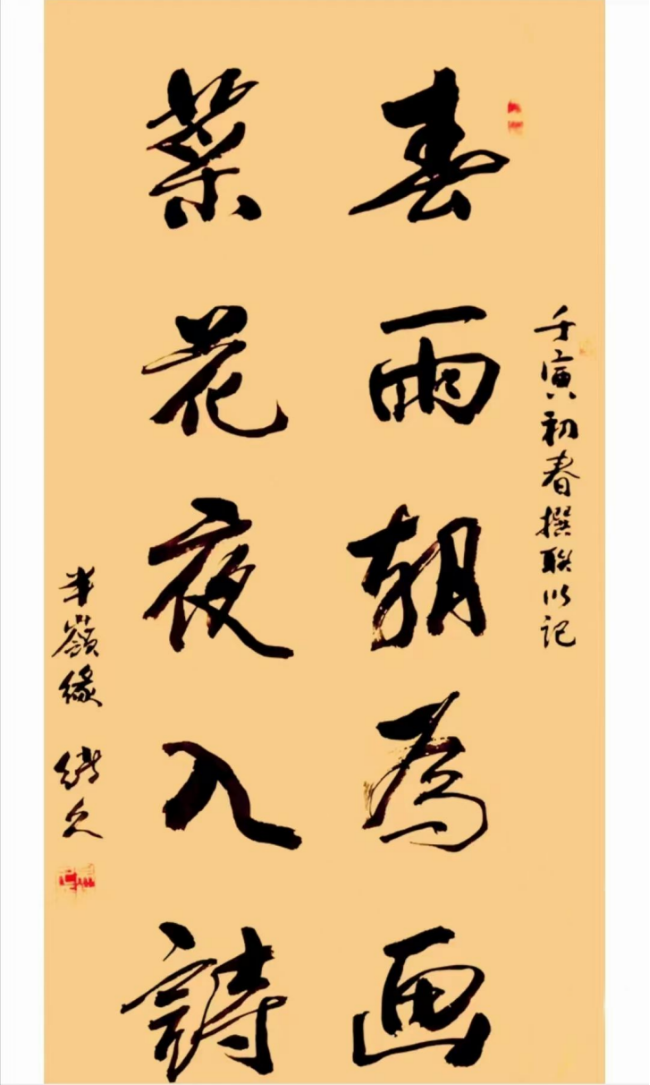 壬寅初春撰联以记
春雨朝為画
菜花夜入詩
半嶺緣